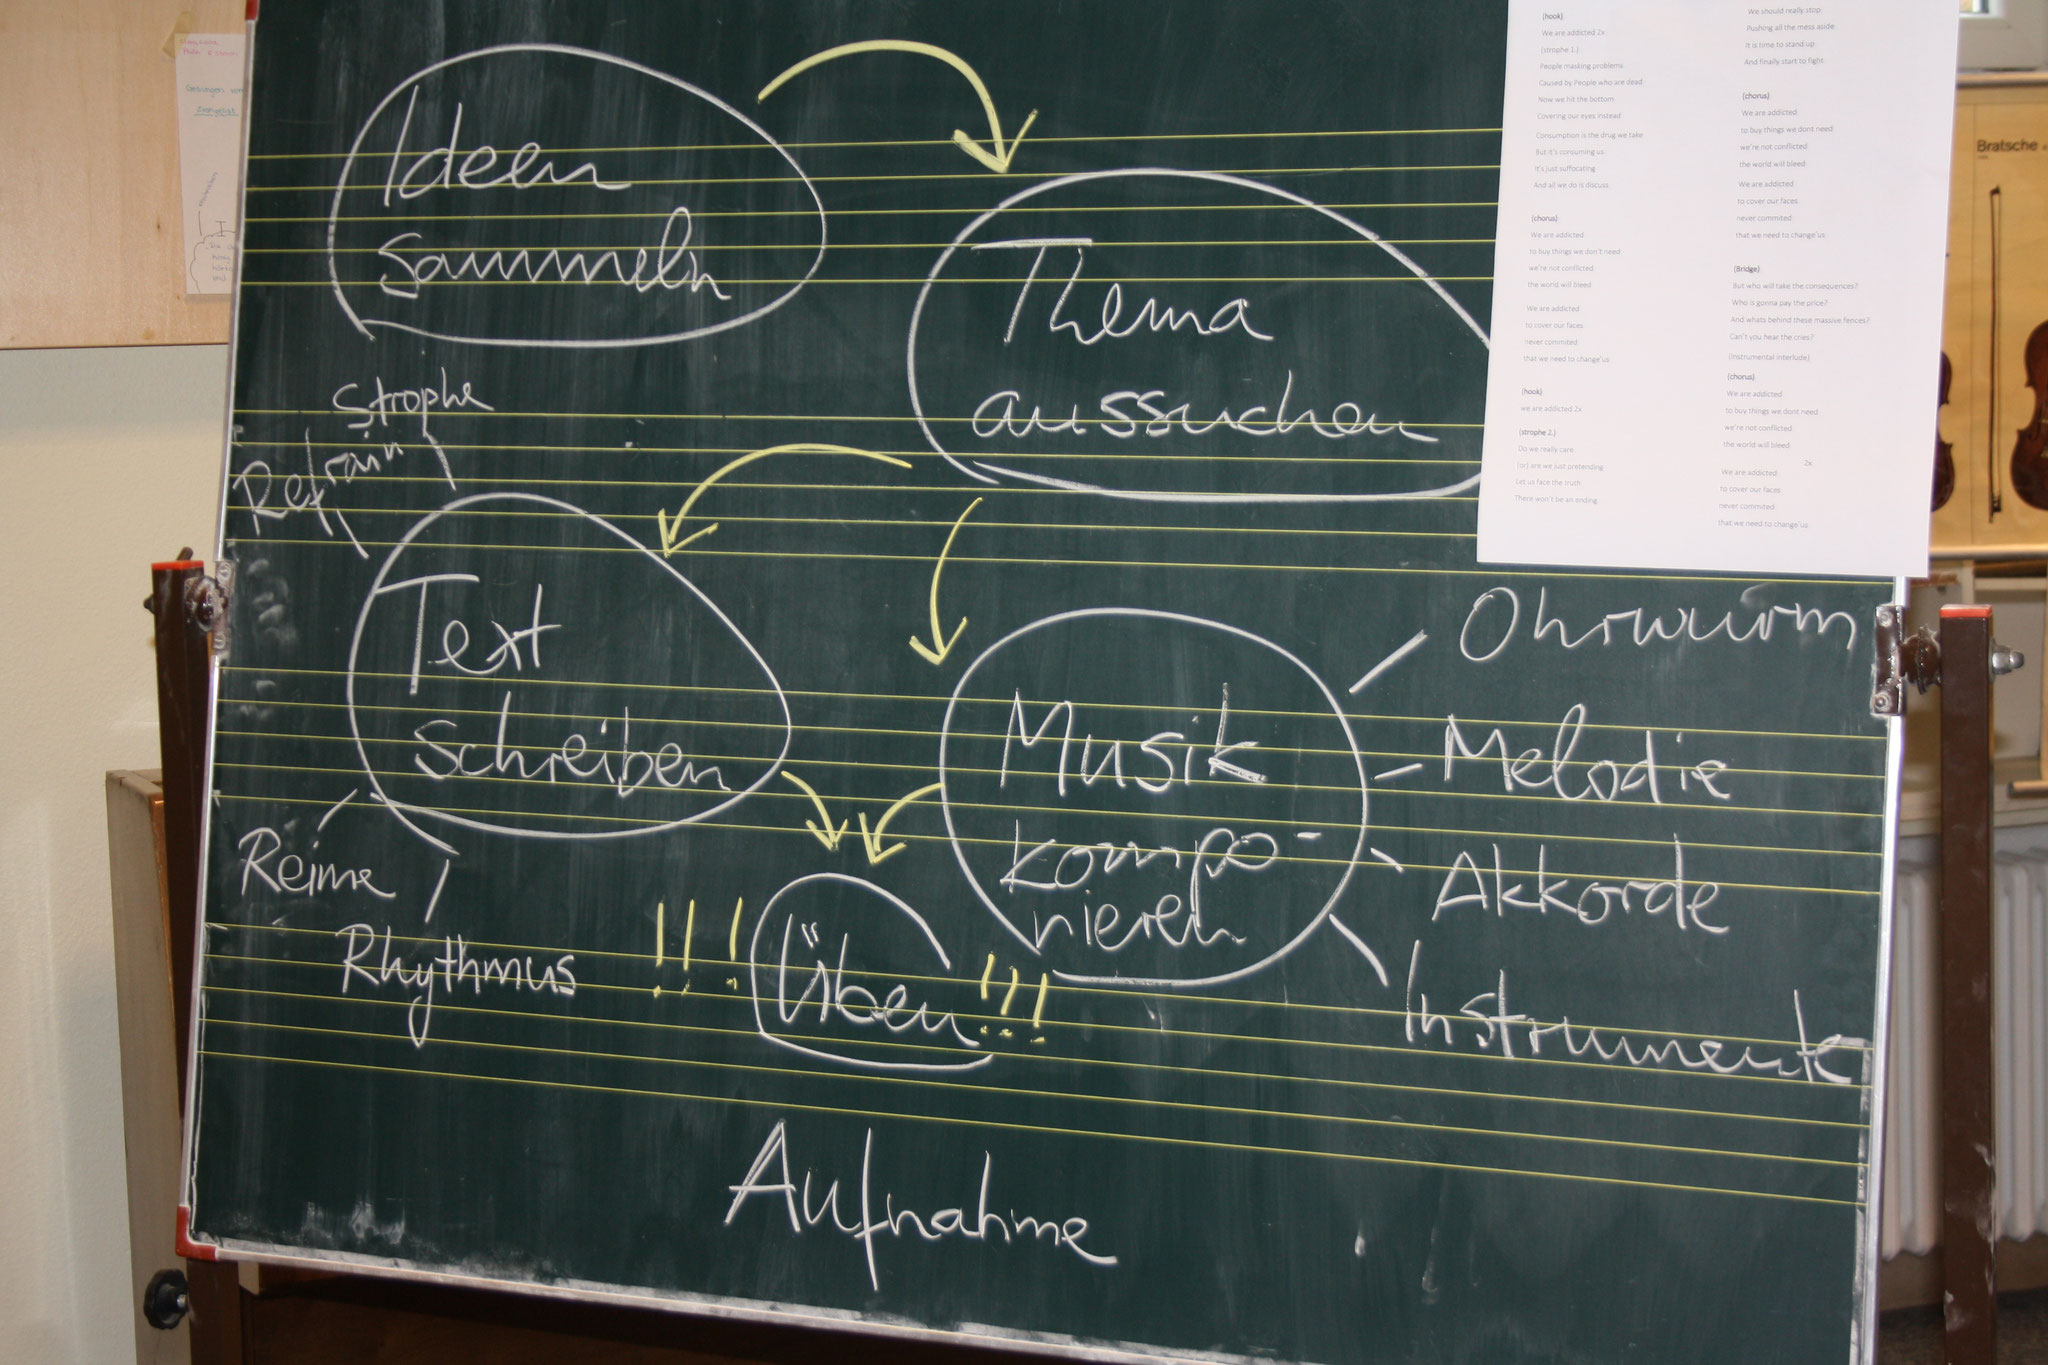 Ideen
sammeln
Thema
aussuchen
Strophe
Refrain
Text
schreiben
Reime
Rhythmus
Musik
kompo-
nieren
Ohrwurm
Melodie
Akkorde
Instrumente
!!! Üben !!!
Aufnahme
(hook)
We are addicted 2x
(strophe 1.)
People masking problems
Caused by People who are dead
Now we hit the bottom
Covering our eyes instead
Consumption is the drug we take
But it's consuming us
It's just suffocating
And all we do is discuss
(chorus)
We are addicted
to buy things we don't need
we're not conflicted
the world will bleed
We are addicted
to cover our faces
never commited
that we need to change'us
(hook)
we are addicted 2x
(strophe 2.)
Do we really care
(or) are we just pretending
Let us face the truth
There won't be an ending
We should really stop
Pushing all the mess aside
It is time to stand up
And finally start to fight
(chorus)
We are addicted
to buy things we dont need
we're not conflicted
the world will bleed
We are addicted
to cover our faces
never commited
that we need to change'us
(Bridge)
But who will take the consequences?
Who is gonna pay the price?
And whats behind these massive fences?
Can't you hear the cries?
(Instrumental interlude)
(chorus)
We are addicted
to buy things we dont need
we're not conflicted
the world will bleed
2x
We are addicted
to cover our faces
never commited
that we need to change'us
Bratsche